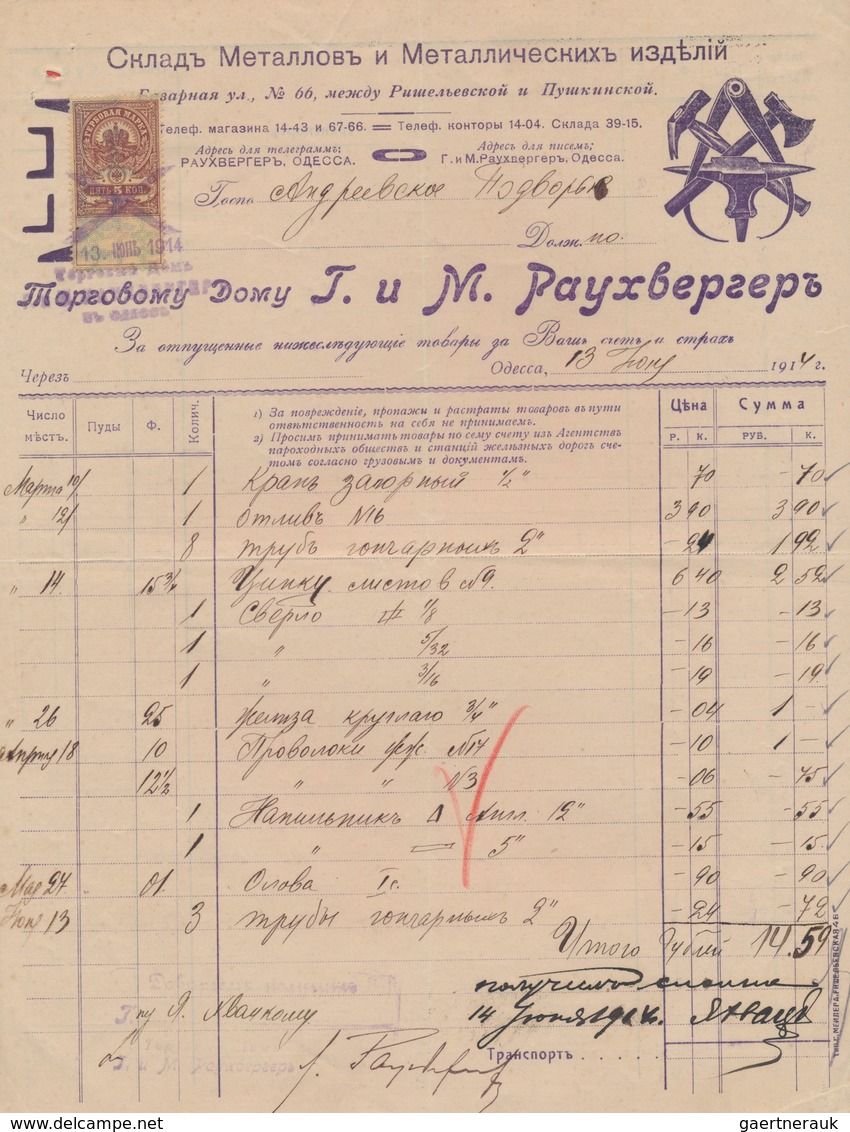 Складъ Металловъ и Металлическихъ издѣлій
Базарная ул., № 66, между Ришельевской и Пушкинской.
Телеф. магазина 14-43 и 67-66. = Телеф. конторы 14-04. Склада 39-15.
Адресъ для телеграммъ: РАУХВЕРГЕРЪ, ОДЕССА.
Адресъ для писемъ: Г. и М. Раухвергеръ, Одесса.
ГЕРБОВАЯ МАРКА
ПЯТЬ 5 КОП.
13. ІЮНЬ 1914
Торговый Домъ
Госпо Андреевское Подворье
Долж. по
Торговому Дому Г. и М. Раухвергеръ
За отпущенные нижеслѣдующіе товары за Вашъ счетъ и страхъ
Черезъ
Одесса, 13 Іюня 1914 г.
Число мѣстъ. Пуды Ф. Колич. Цѣна Р. К. Сумма РУБ. К.
1) За поврежденіе, пропажи и растраты товаровъ въ пути
отвѣтственность на себя не принимаемъ.
2) Просимъ принимать товары по сему счету изъ Агентствъ
пароходныхъ обществъ и станцій желѣзныхъ дорогъ сче-
томъ согласно грузовымъ и документамъ.
Марта 10/ 1 Кранъ запорный 1/2" - 70 - 70
" 12/ 1 отливъ №16 3 90 3 90
8 трубъ гончарныхъ 2" - 24 1 92
" 14. 15 3/4 Цинку листов №9. 6 40 2 52
1 Сверло 1/8 - 13 - 13
1 " 5/32 - 16 - 16
1 " 3/16 - 19 - 19
" 26 25 желѣза круглаго 3/4" - 04 1 -
Апрѣля 18 10 Проволоки жж. №14 - 10 1 -
12 1/2 " " №3 - 06 - 75
1 Напильникъ Δ Англ. 12" - 55 - 55
1 " 5" - 15 - 15
Мая 27 01 Олова Iс. - 90 - 90
Іюня 13 3 трубы гончарныхъ 2" - 24 - 72
Итого Рублей 14.59
получилъ сполна
14
Транспортъ
Г. и М. Раухвергеръ